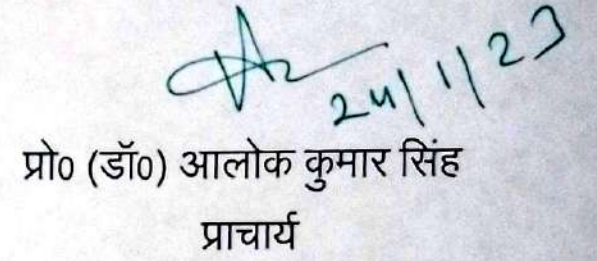 24/1/23
प्रो० (डॉ०) आलोक कुमार सिंह
प्राचार्य